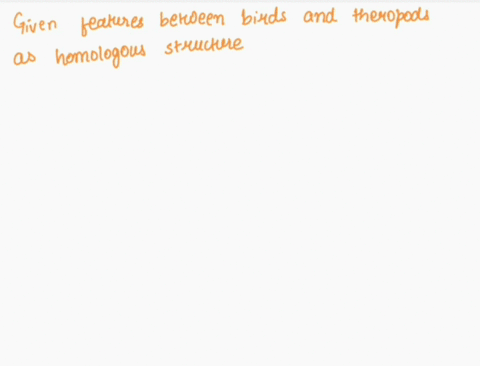 Given features between birds and theropods
as homologous structure